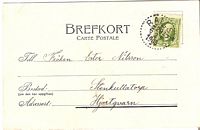 BREFKORT
CARTE POSTALE
Till Fröken Ester Nilsson
Bostad:
Stenkullatorp
Adressort:
Hjortqvarn